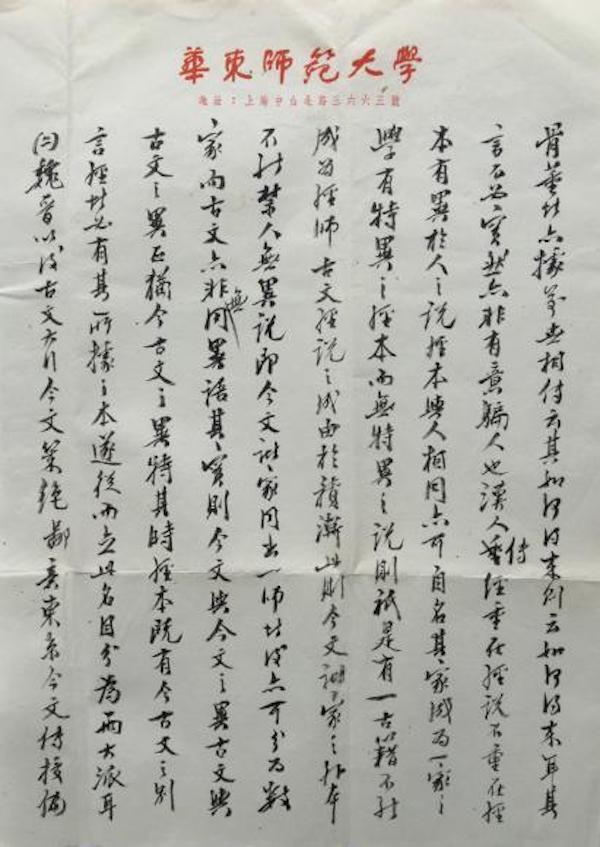 華東師範大學
地址：上海中山北路三六六三號
骨董者亦據輩世相傳云其如何得來則云如何得來耳其
言不必實然亦非有意騙人也漢人傳經重在經說不重在經
本有異於人之說經本與人相同亦可自名其家成為一家之
學有特異之經本而無特異之說則祇是有一古籍不能
成為經師古文經說之成由於積漸此則今文諸家之
不能禁人無異說即今文諸家同出一師者後亦可分為數
家而古文亦非同無異語其實則今文與今文之異古文與
古文之異正猶今古文之異特其時經本既有今古文之別
言經者必有其所據之本遂從而立此名目分為兩大派耳
魏晉以後古文大行今文衰絕鄙意東京今文傳授